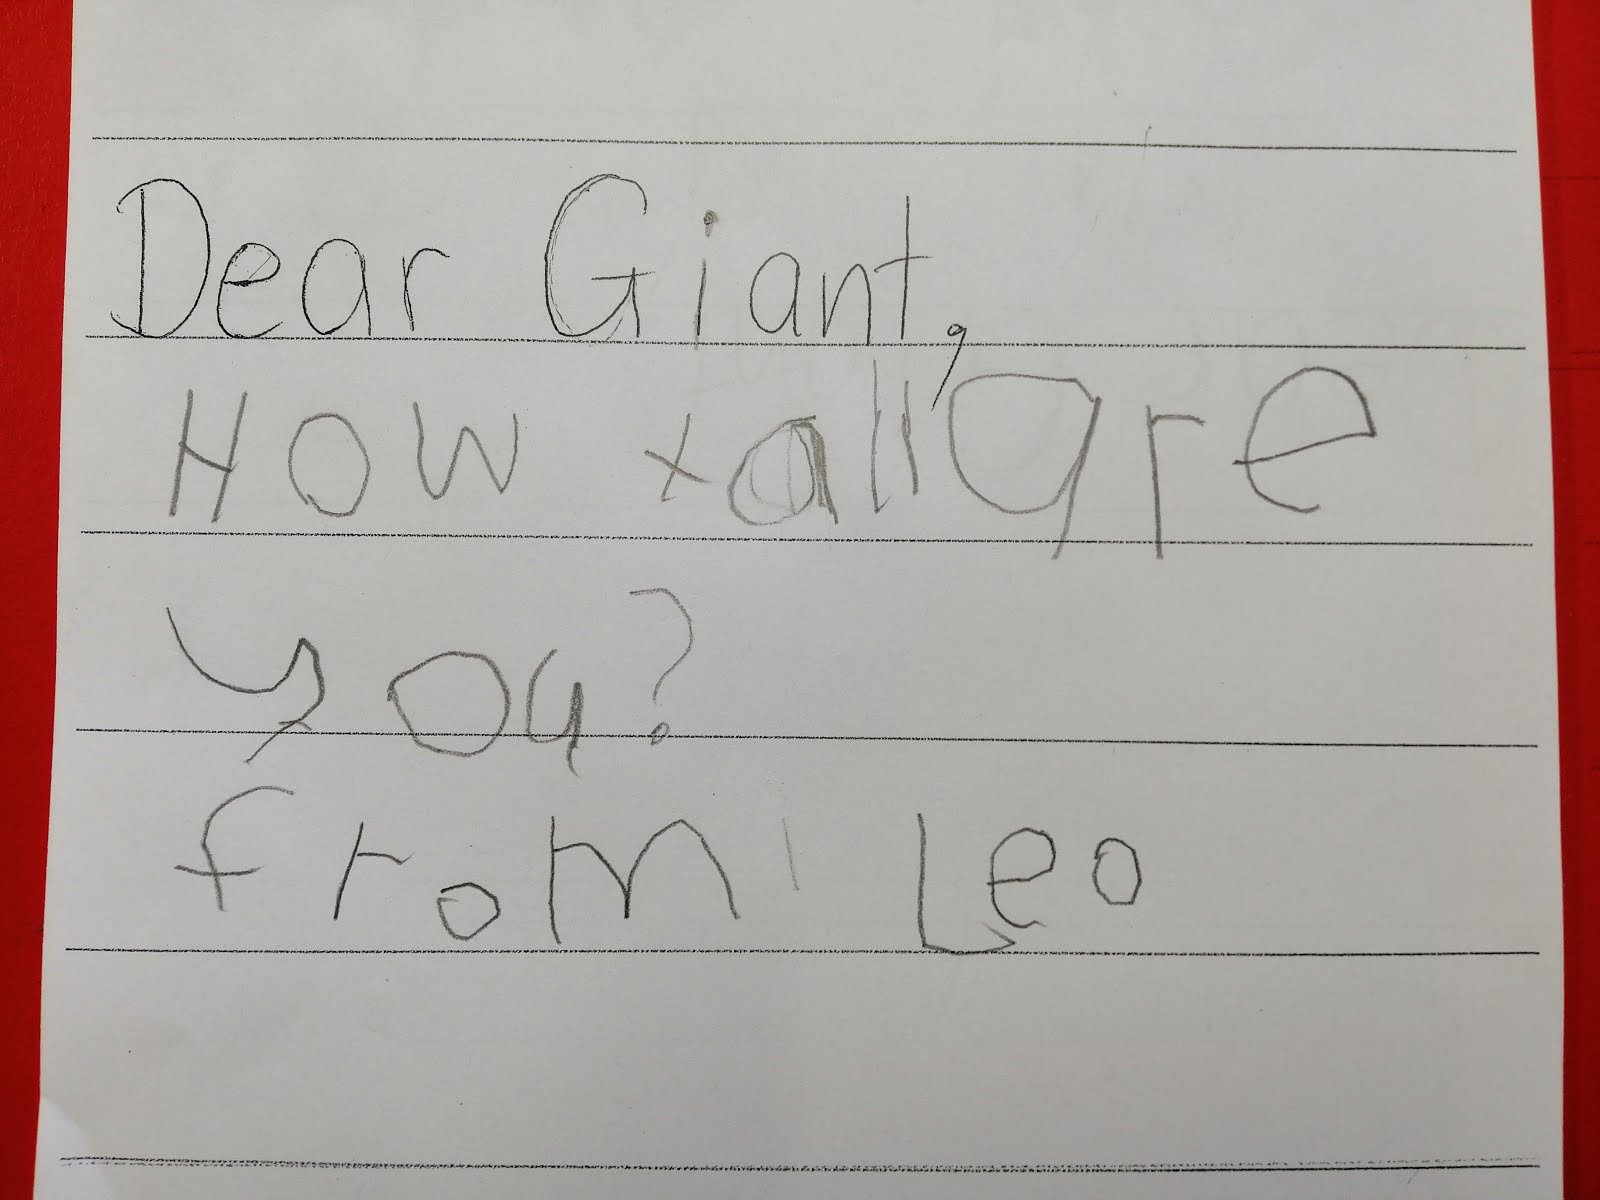 Dear Giant,
How tall are
you?
from Leo